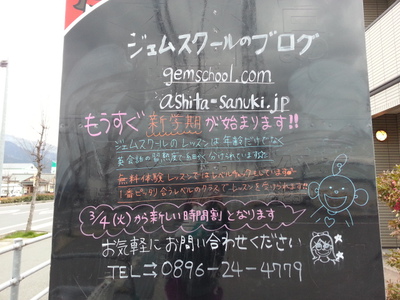 ジェムスクールのブログ
gemschool.com
ashita-sanuki.jp
もうすぐ新学期が始まります!!
ジェムスクールのレッスンは年齢だけでなく
英会話の習熟度でも細かく分けられています
無料体験レッスンではレベルチェックもしています
1番ピッタリ合うレベルのクラスでレッスンを受けられますよ
3/4(火)から新しい時間割となります
お気軽にお問い合わせください
TEL→0896-24-4779